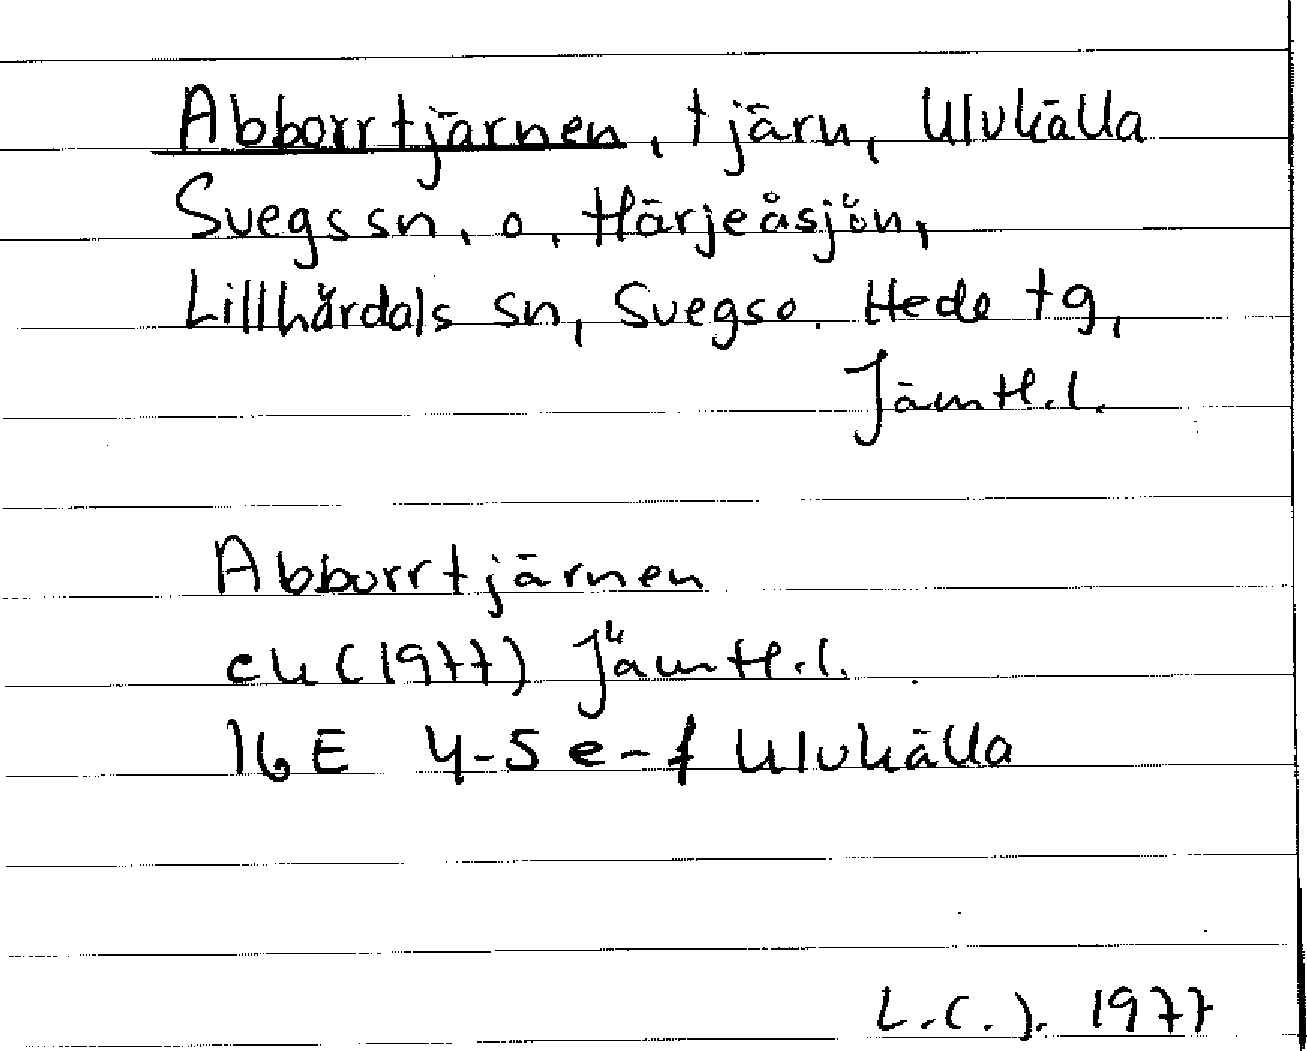 Abborrtjärnen, tjärn, Ulvkälla
Svegs sn, o. Härjeåsjön,
Lillhärdals sn, Svegs o. Hede tg,
Jämtl.l.
Abborrtjärnen
ek (1977) Jämtl.l.
16E 4-5 e-f Ulvkälla
L.C.J. 1977